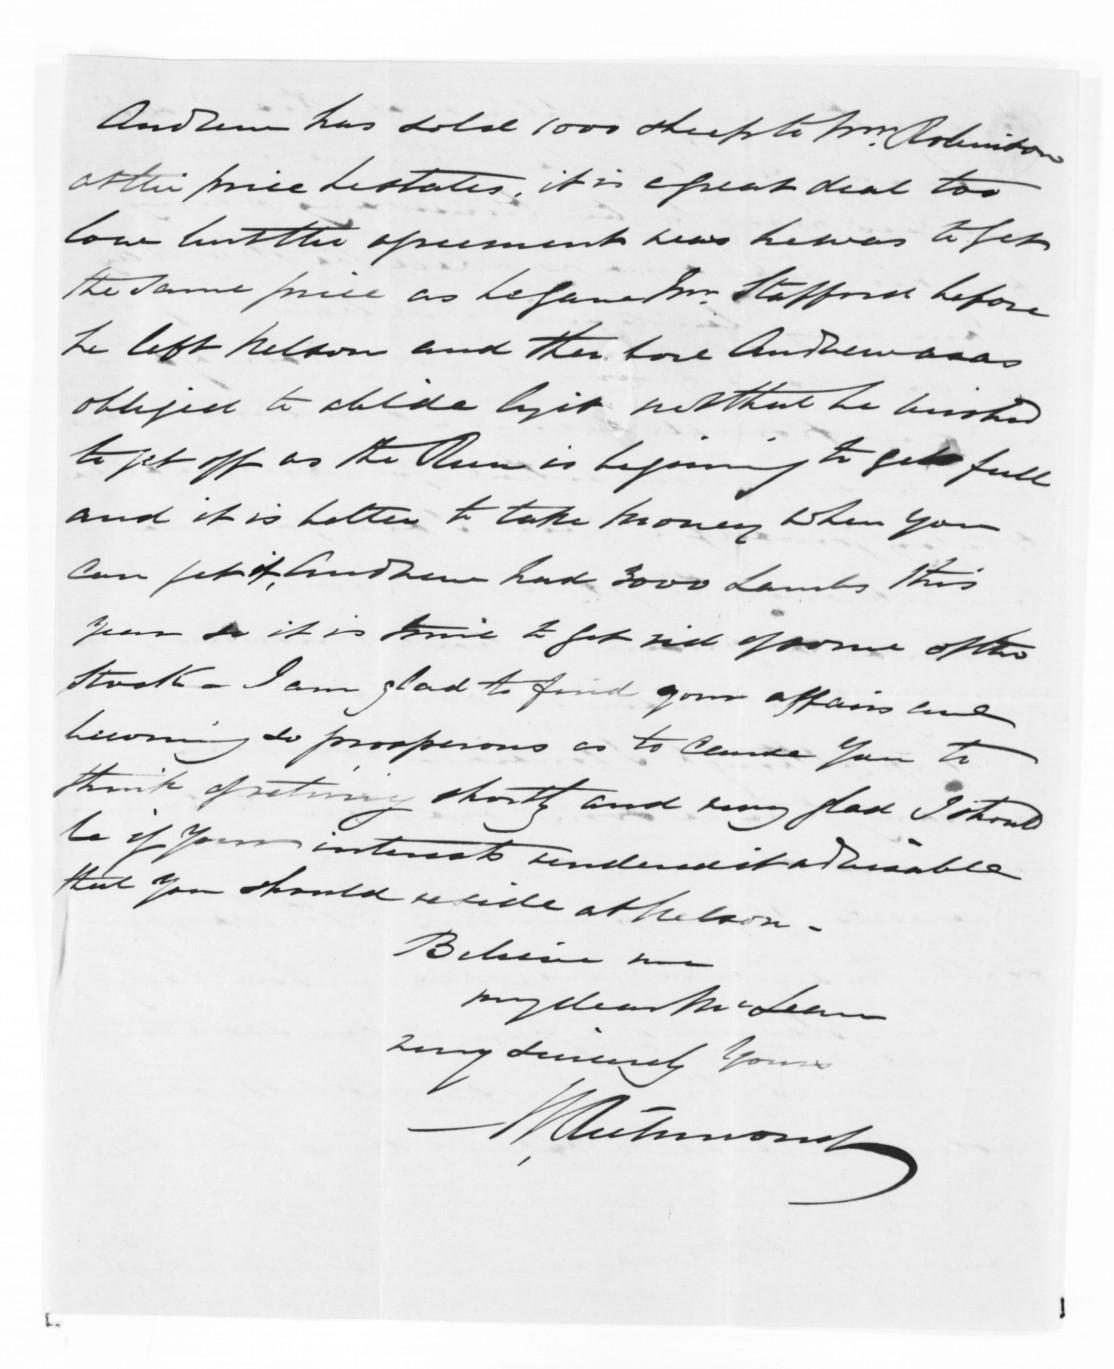 Andrew has sold 1000 sheep to Mr. Robinson
at the price he states, it is a great deal too
low but the agreement was he was to get
the same price as he gave Mr. Stafford before
he left Nelson and therefore Andrew was
obliged to abide by it not that he wished
to get off as the Run is begining to get full
and it is better to take money when you
can get it, Andrew had 3000 Lambs this
year so it is time to get rid of some of the
stock – I am glad to find your affairs are
becoming so prosperous as to cause you to
think of retiring shortly and very glad I should
be if your interests rendered it adviseable
that you should reside at Nelson –
Believe me
my dear McLean
very sincerely yours